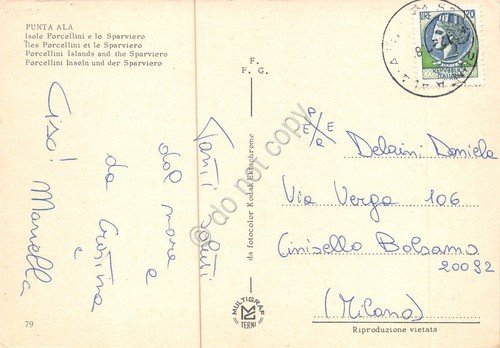 PUNTA ALA
Isole Porcellini e lo Sparviero
Îles Porcellini et le Sparviero
Porcellini Islands and the Sparviero
Porcellini Inseln und der Sparviero
Tanti saluti
dal mare e
da Cristina
e
Ciao! Mariella
79
F.
F. G.
da fotocolor Kodak Ektachrome
MULTIGRAF
TERNI
do not copy
LIRE 120
P
E E
R
Delaini Daniela
Via Verga 106
Cinisello Balsamo
20092
(Milano)
Riproduzione vietata